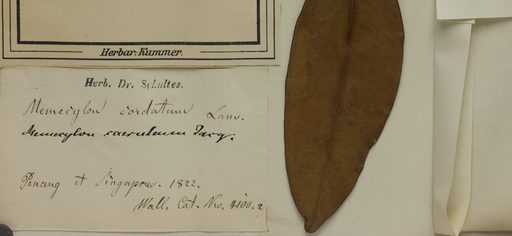 Herbar. Kummer.
Herb. Dr. Schultes.
Memecylon cordatum Lam.
Memecylon caeruleum Jacq.
Penang et Singapore. 1822.
Wall. Cat. No. 4100.2